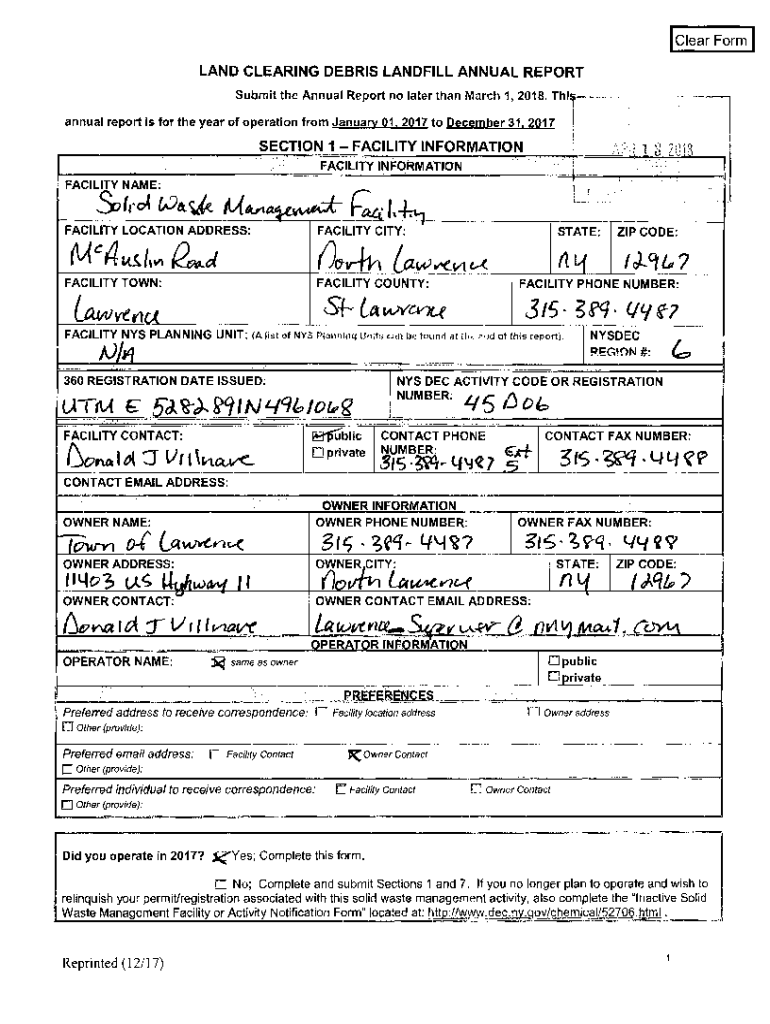 Clear Form
LAND CLEARING DEBRIS LANDFILL ANNUAL REPORT
Submit the Annual Report no later than March 1, 2018. This
annual report is for the year of operation from January 01, 2017 to December 31, 2017
SECTION 1 – FACILITY INFORMATION
2018
FACILITY INFORMATION
FACILITY NAME:
Solid Waste Management Facility
FACILITY LOCATION ADDRESS: FACILITY CITY: STATE: ZIP CODE:
McAuslin Road North Lawrence NY 12967
FACILITY TOWN: FACILITY COUNTY: FACILITY PHONE NUMBER:
Lawrence St Lawrence 315-389-4487
FACILITY NYS PLANNING UNIT: (A list of NYS Planning Units can be found at the end of this report). NYSDEC
N/A REGION #: 6
360 REGISTRATION DATE ISSUED: NYS DEC ACTIVITY CODE OR REGISTRATION
UTM E 5282891N4961068 NUMBER: 45D06
FACILITY CONTACT: public CONTACT PHONE CONTACT FAX NUMBER:
Donald J Villnave private NUMBER: 315-389-4487 Ext 5 315-389-4488
CONTACT EMAIL ADDRESS:
OWNER INFORMATION
OWNER NAME: OWNER PHONE NUMBER: OWNER FAX NUMBER:
Town of Lawrence 315-389-4487 315-389-4488
OWNER ADDRESS: OWNER CITY: STATE: ZIP CODE:
11403 US Highway 11 North Lawrence NY 12967
OWNER CONTACT: OWNER CONTACT EMAIL ADDRESS:
Donald J Villnave
OPERATOR INFORMATION
OPERATOR NAME: same as owner public
private
PREFERENCES
Preferred address to receive correspondence: Facility location address Owner address
Other (provide):
Preferred email address: Facility Contact Owner Contact
Other (provide):
Preferred individual to receive correspondence: Facility Contact Owner Contact
Other (provide):
Did you operate in 2017? Yes; Complete this form.
No; Complete and submit Sections 1 and 7. If you no longer plan to operate and wish to
relinquish your permit/registration associated with this solid waste management activity, also complete the "Inactive Solid
Waste Management Facility or Activity Notification Form" located at: http://www.dec.ny.gov/chemical/52706.html .
Reprinted (12/17) 1